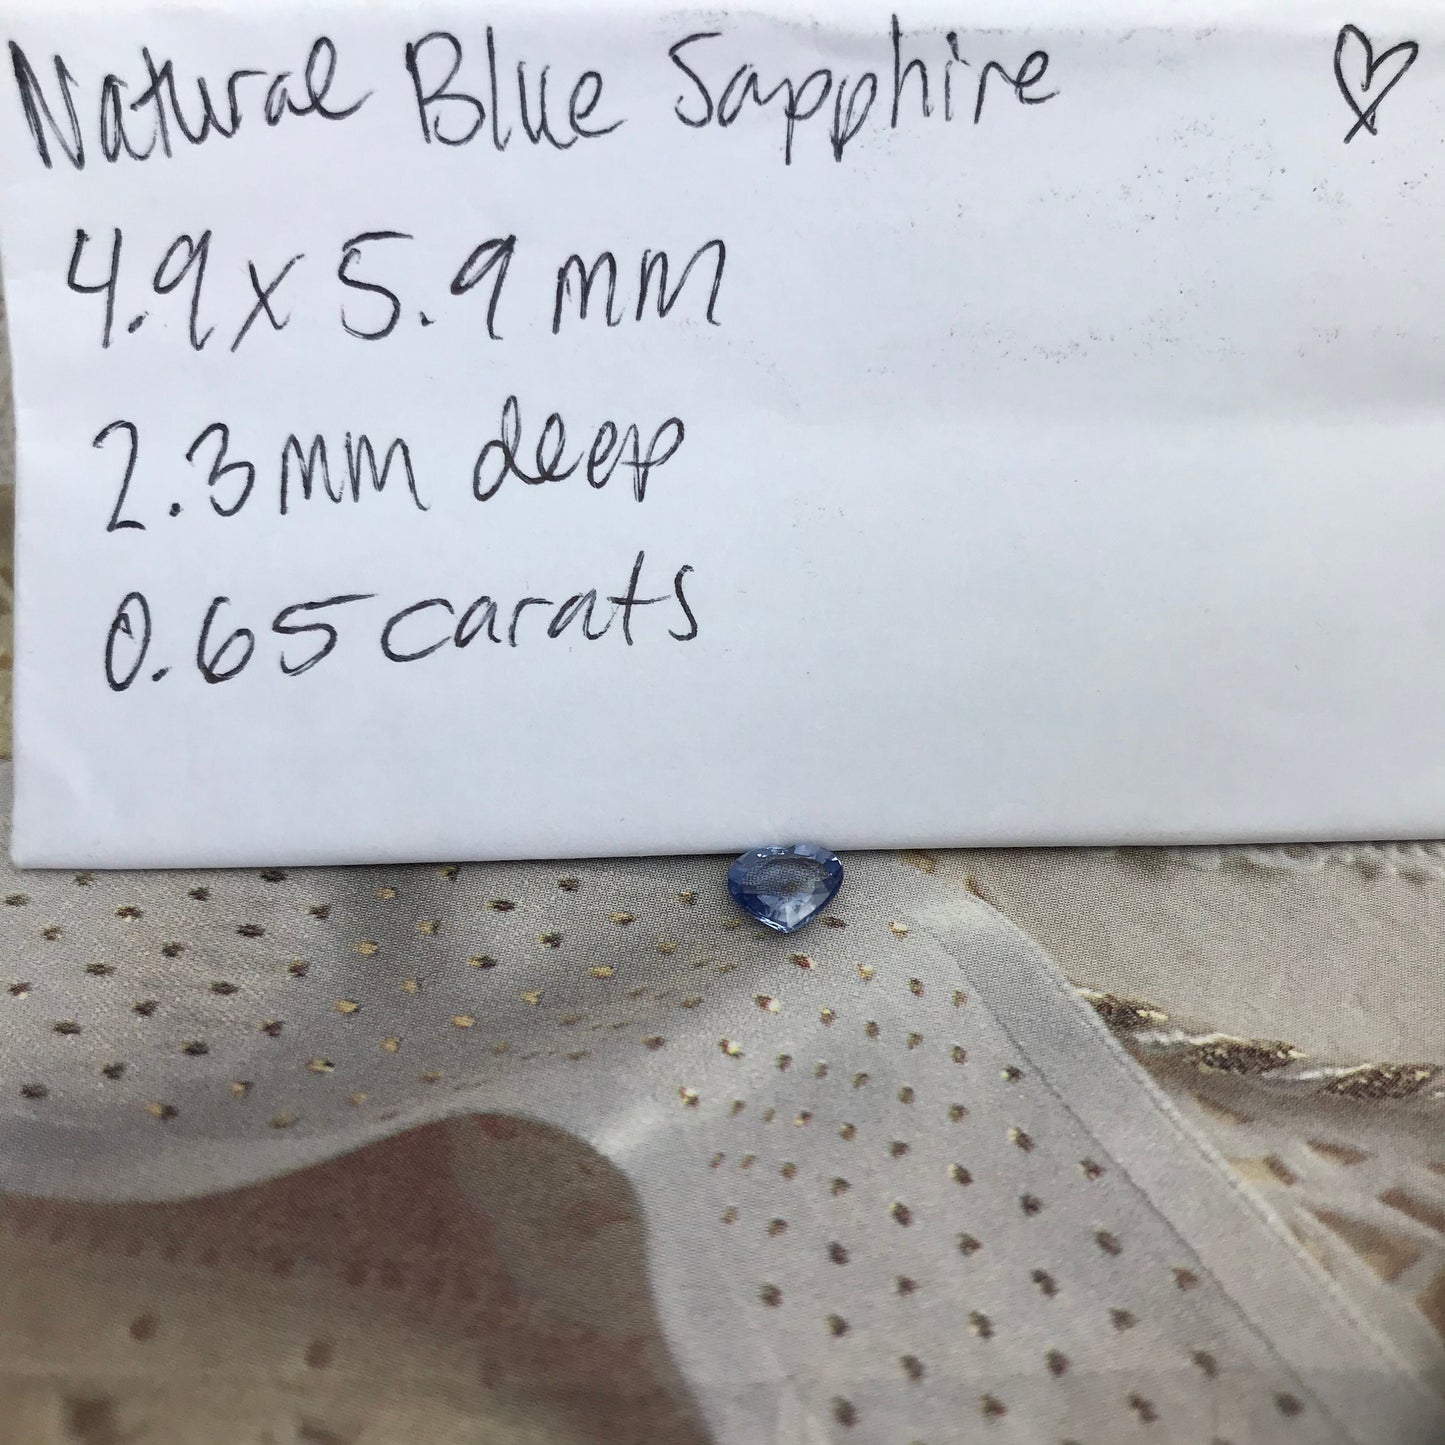 Natural Blue Sapphire
4.9 x 5.9 mm
2.3 mm deep
0.65 carats